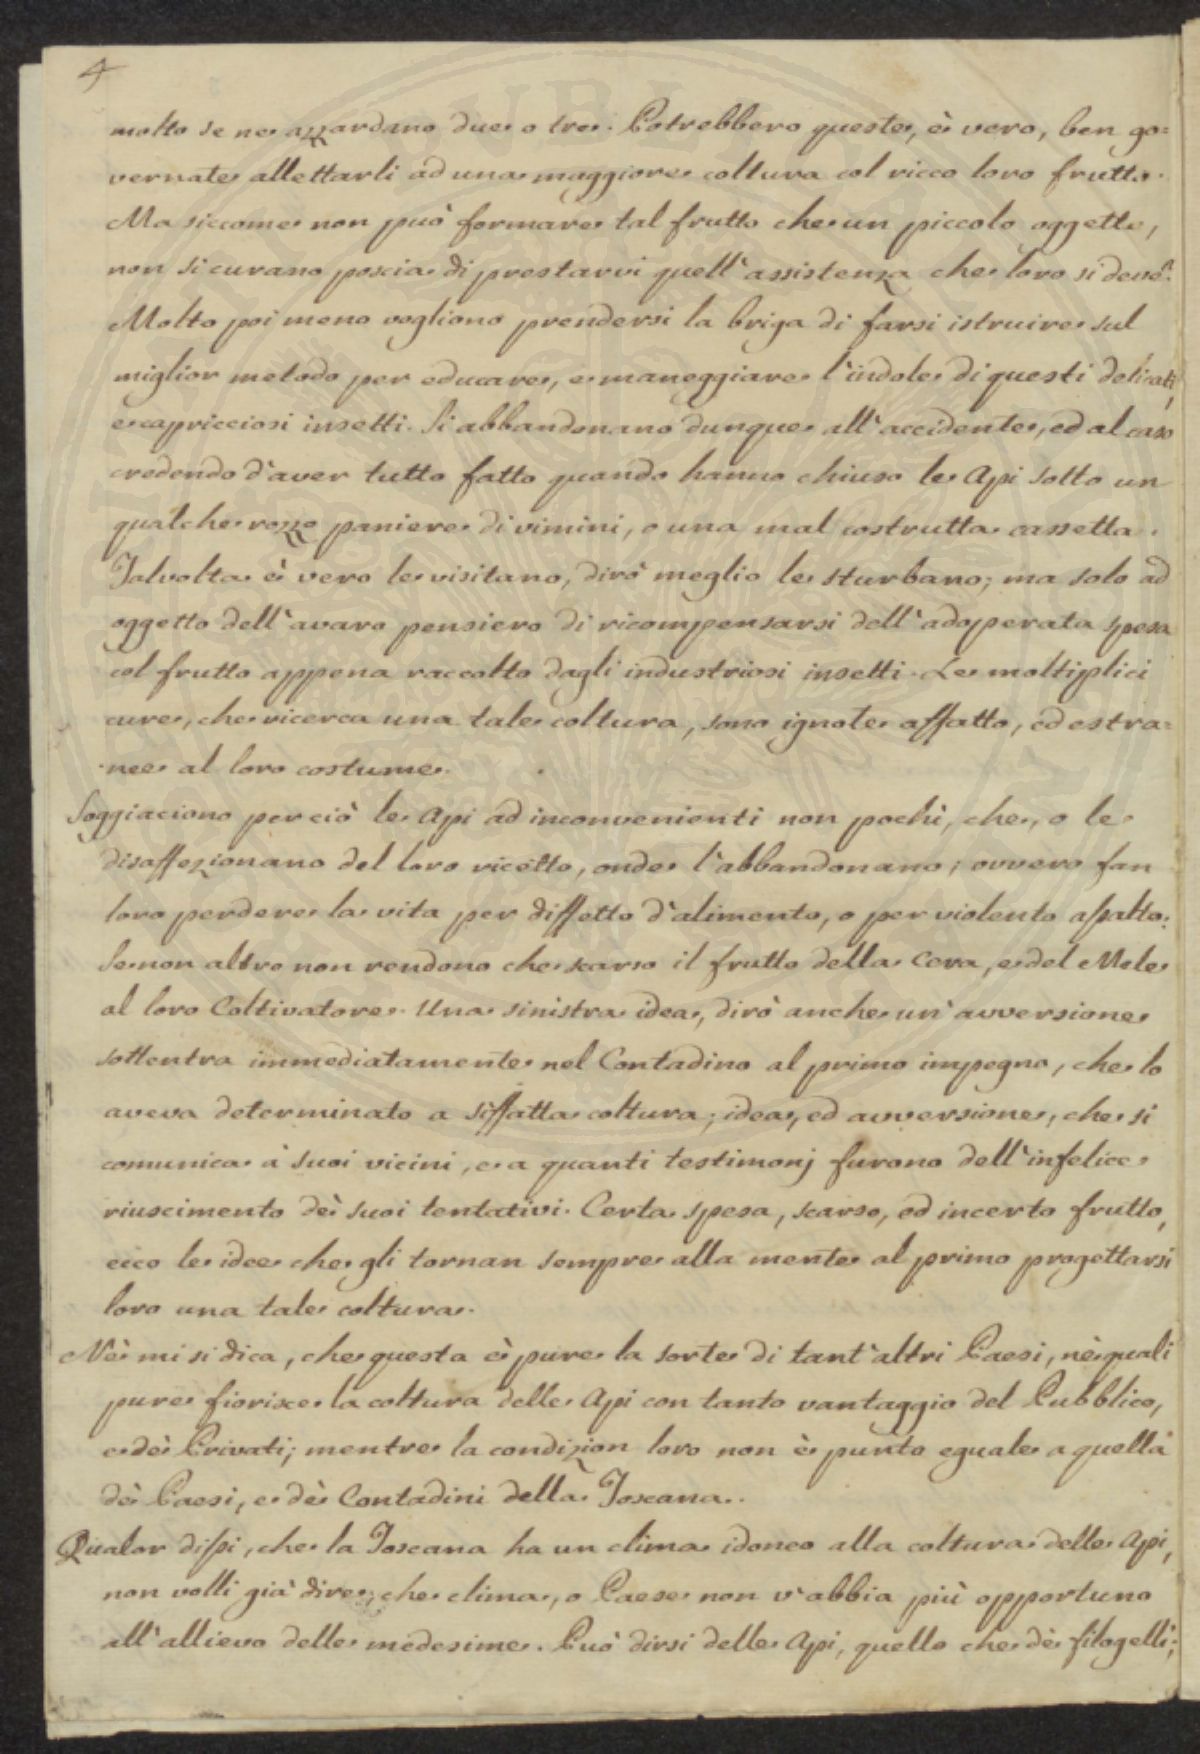 4
molto se ne azzardano due o tre. Potrebbero queste, è vero, ben go=
vernate allettarli ad una maggiore coltura col ricco loro frutto.
Ma siccome non può formare tal frutto che un piccolo oggetto,
non si curano poscia di prestarvi quell'assistenza che loro si deve.
Molto poi meno vogliono prendersi la briga di farsi istruire sul
miglior metodo per educare, e maneggiare l'indole di questi delicati,
e capricciosi insetti. Si abbandonano dunque all'accidente, ed al caso
credendo d'aver tutto fatto quando hanno chiuso le Api sotto un
qualche rozzo paniere di vimini, o una mal costrutta cassetta.
Talvolta è vero le visitano, dirò meglio le sturbano; ma solo ad
oggetto dell'avaro pensiero di ricompensarsi dell'adoperata spesa
col frutto appena raccolto dagli industriosi insetti. Le moltiplici
cure, che ricerca una tale coltura, sono ignote affatto, ed estra=
nee al loro costume.
Soggiaciono perciò le Api ad inconvenienti non pochi, che, o le
disaffezionano del loro ricetto, onde l'abbandonano; ovvero fan
loro perdere la vita per diffetto d'alimento, o per violento assalto.
Se non altro non rendono che scarso il frutto della Cera, e del Mele
al loro Coltivatore. Una sinistra idea, dirò anche un'avversione
sottentra immediatamente nel Contadino al primo impegno, che lo
aveva determinato a siffatta coltura; idea, ed avversione, che si
comunica a' suoi vicini, e a quanti testimonj furono dell'infelice
riuscimento de' suoi tentativi. Certa spesa, scarso, ed incerto frutto,
ecco le idee che gli tornan sempre alla mente al primo progettarsi
loro una tale coltura.
Nè mi si dica, che questa è pure la sorte di tant'altri Paesi, ne' quali
pure fiorisce la coltura delle Api con tanto vantaggio del Pubblico,
e de' Privati; mentre la condizion loro non è punto eguale a quella
de' Paesi, e de' Contadini della Toscana.
Qualor dissi, che la Toscana ha un clima idoneo alla coltura delle Api,
non volli già dire, che clima, o Paese non v'abbia più opportuno
all'allievo delle medesime. Può dirsi delle Api, quello che de' filogelli;